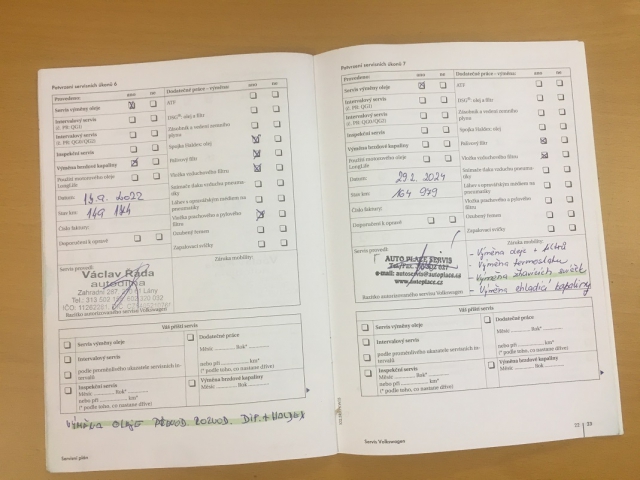 Potvrzení servisních úkonů 6
Provedeno: ano ne
Servis výměny oleje
Intervalový servis
(č. PR: QG1)
Intervalový servis
(č. PR: QG0/QG2)
Inspekční servis
Výměna brzdové kapaliny
Použití motorového oleje
LongLife
Datum:
Stav km: 149 144
Číslo faktury:
Doporučení k opravě
Dodatečné práce - výměna: ano ne
ATF
DSG®: olej a filtr
Zásobník a vedení zemního
plynu
Spojka Haldex: olej
Palivový filtr
Vložka vzduchového filtru
Snímače tlaku vzduchu pneumatiky
Láhev s opravářským médiem na
pneumatiky
Vložka prachového a pylového
filtru
Ozubený řemen
Zapalovací svíčky
Servis provedl:
Záruka mobility:
Václav Ráda
autodílna
Razítko autorizovaného servisu Volkswagen
Váš příští servis
Servis výměny oleje
Intervalový servis
podle proměnlivého ukazatele servisních intervalů
Inspekční servis
Měsíc Rok*
nebo při km*
(* podle toho, co nastane dříve)
Dodatečné práce
Měsíc Rok*
nebo při km*
(* podle toho, co nastane dříve)
Výměna brzdové kapaliny
Měsíc Rok
VÝMĚNA OLEJE PŘEVOD. ROZVOD. DIF. + HALDEX
Servisní plán
Potvrzení servisních úkonů 7
Provedeno: ano ne
Servis výměny oleje
Intervalový servis
(č. PR: QG1)
Intervalový servis
(č. PR: QG0/QG2)
Inspekční servis
Výměna brzdové kapaliny
Použití motorového oleje
LongLife
Datum: 29.2. 2024
Stav km: 164 979
Číslo faktury:
Doporučení k opravě
Dodatečné práce - výměna: ano ne
ATF
DSG®: olej a filtr
Zásobník a vedení zemního
plynu
Spojka Haldex: olej
Palivový filtr
Vložka vzduchového filtru
Snímače tlaku vzduchu pneumatiky
Láhev s opravářským médiem na
pneumatiky
Vložka prachového a pylového
filtru
Ozubený řemen
Zapalovací svíčky
Servis provedl:
Záruka mobility:
AUTO PLACE SERVIS
e-mail: autoplace@autoplace.cz
www.autoplace.cz
Razítko autorizovaného servisu Volkswagen
- Výměna oleje + filtrů
- Výměna termostatu
- Výměna žhavících svíček
- Výměna chladící kapaliny
Váš příští servis
Servis výměny oleje
Intervalový servis
podle proměnlivého ukazatele servisních intervalů
Inspekční servis
Měsíc Rok*
nebo při km*
(* podle toho, co nastane dříve)
Dodatečné práce
Měsíc Rok*
nebo při km*
(* podle toho, co nastane dříve)
Výměna brzdové kapaliny
Měsíc Rok
Servis Volkswagen